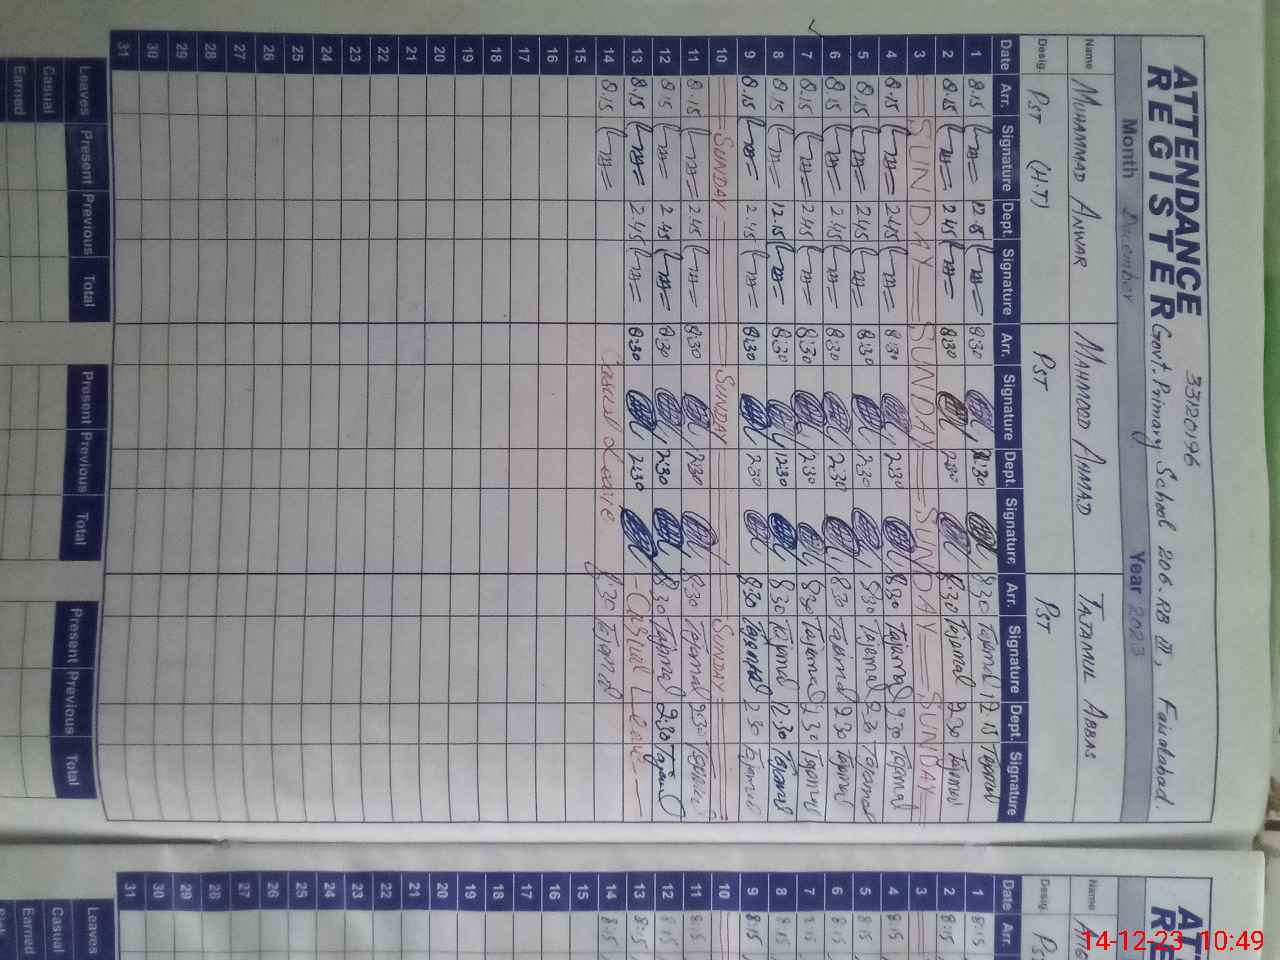 33120196
ATTENDANCE Govt. Primary School 206.RB III, Faisalabad.
REGISTER
Month December Year 2023
Name MUHAMMAD ANWAR MAHMOOD AHMAD TAJAMUL ABBAS
Desig. PST (H.T) PST PST
Date Arr. Signature Dept. Signature Arr. Signature Dept. Signature Arr. Signature Dept. Signature
1 8.15 12.15 8:30 8:30 Tajamal 12.15 Tajamal
2 8.15 2.45 8:30 2:30 8:30 Tajamal 2.30 Tajamal
3 SUNDAY SUNDAY SUNDAY SUNDAY
4 8.15 2.45 8:30 2:30 8:30 Tajamal 2.30 Tajamal
5 8.15 2.45 8:30 2:30 8:30 Tajamal 2.30 Tajamal
6 8.15 2.45 8:30 2:30 8:30 Tajamal 2.30 Tajamal
7 8.15 2.45 8:30 2:30 8:30 Tajamal 2.30 Tajamal
8 8.15 12.15 8:30 12:30 8:30 Tajamal 12.30 Tajamal
9 8.15 2.45 8:30 2:30 8:30 Tajamal 2.30 Tajamal
10 SUNDAY SUNDAY SUNDAY
11 8.15 2.45 8:30 2:30 8:30 Tajamal 2.30
12 8.15 2.45 8:30 2:30 8:30 Tajamal 2:30 Tajamal
13 8.15 2.45 8:30 2:30 Casual Leave
14 8.15 Casual Leave 8:30 Tajamal
15
16
17
18
19
20
21
22
23
24
25
26
27
28
29
30
31
Leaves Present Previous Total Present Previous Total Present Previous Total
Casual
Earned
Name
Desig.
Date Arr.
1 8:15
2 8:15
3
4 8:15
5 8:15
6 8:15
7 8:15
8 8:15
9 8:15
10
11 8:15
12 8:15
13 8:15
14 8:15
15
16
17
18
19
20
21
22
23
24
25
26
27
28
29
30
31
Leaves
Casual
Earned
14-12-23 10:49